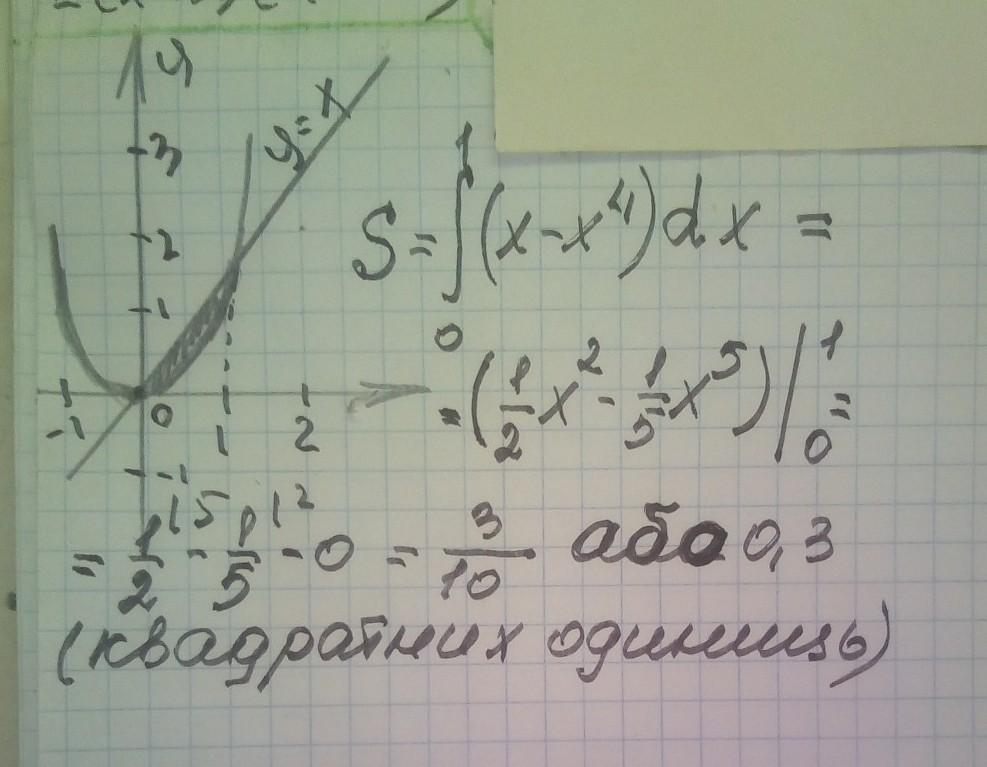 y
3
2
1
0
-1
1
2
-1
y = x
S = ∫₀¹ (x - x⁴) dx =
= (1/2 x² - 1/5 x⁵) |₀¹ =
= 1/2 |⁵ - 1/5 |² - 0 = 3/10 або 0,3
(квадратних одиниць)